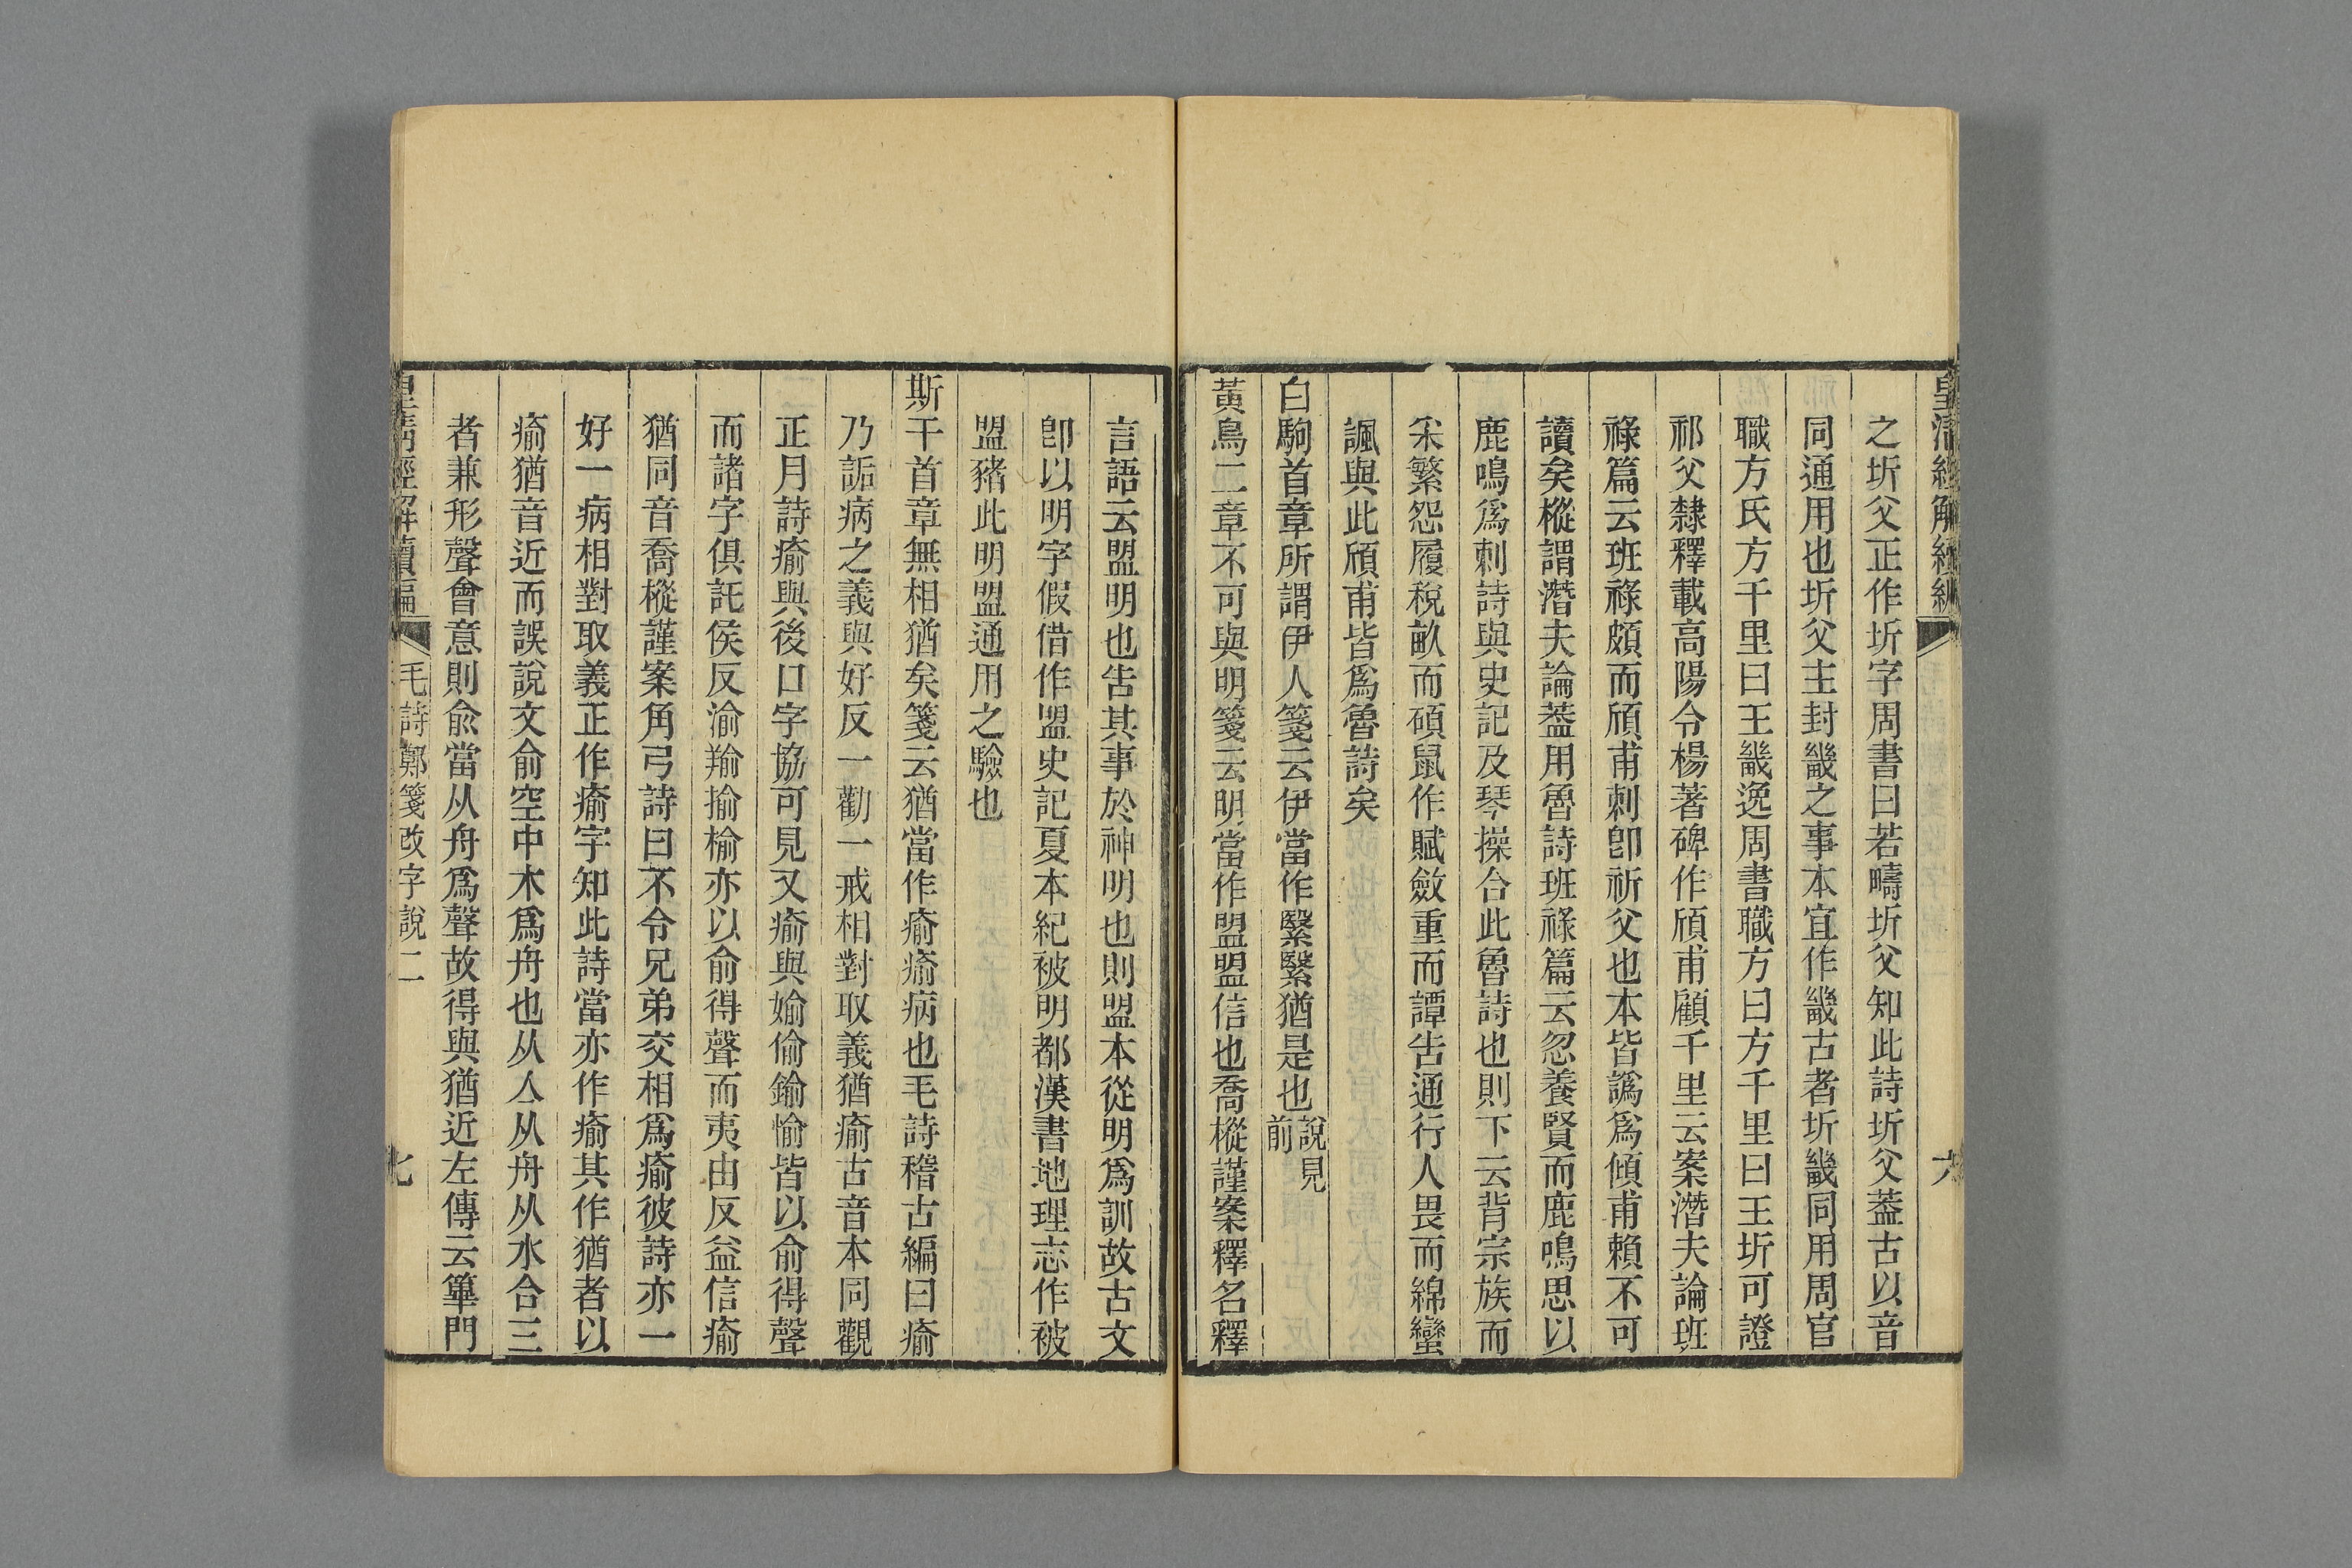 皇淸經解續編
六
之圻父正作圻字周書曰若疇圻父知此詩圻父葢古以音
同通用也圻父主封畿之事本宜作畿古者圻畿同用周官
職方氏方千里曰王畿逸周書職方曰方千里曰王圻可證
祁父隸釋載高陽令楊著碑作頎甫顧千里云案潛夫論班
祿篇云班祿頗而頎甫刺卽祈父也本皆譌爲傾甫賴不可
讀矣樅謂潛夫論葢用魯詩班祿篇云忽養賢而鹿鳴思以
鹿鳴爲刺詩與史記及琴操合此魯詩也則下云背宗族而
采繁怨履稅畝而碩鼠作賦斂重而譚告通行人畏而綿蠻
諷與此頎甫皆爲魯詩矣
白駒首章所謂伊人箋云伊當作繄繄猶是也說見前
黃鳥二章不可與明箋云明當作盟盟信也喬樅謹案釋名釋
言語云盟明也告其事於神明也則盟本從明爲訓故古文
卽以明字假借作盟史記夏本紀被明都漢書地理志作被
盟豬此明盟通用之驗也
斯干首章無相猶矣箋云猶當作瘉瘉病也毛詩稽古編曰瘉
乃詬病之義與好反一勸一戒相對取義猶瘉古音本同觀
正月詩瘉與後口字協可見又瘉與媮偷鍮愉皆以俞得聲
而諸字俱託侯反渝羭揄楡亦以俞得聲而夷由反益信瘉
猶同音喬樅謹案角弓詩曰不令兄弟交相爲瘉彼詩亦一
好一病相對取義正作瘉字知此詩當亦作瘉其作猶者以
瘉猶音近而誤說文俞空中木爲舟也从亼从舟从水合三
者兼形聲會意則兪當从舟爲聲故得與猶近左傳云篳門
皇淸經解續編
毛詩鄭箋改字說二
七